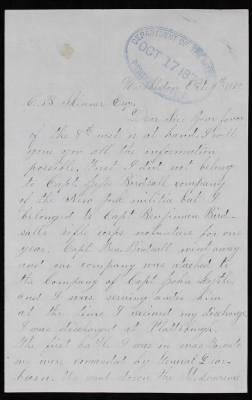 DEPARTMENT OF THE
OCT 17 187
Oct 9th
C. B. Skinner Esqr.
Dear Sir Your favor
of the 8th inst is at hand. I will
give you all the information
possible. First I did not belong
to Capt John Birdsall company
of the New York militia but I
belonged to Capt Benjamin Bird-
salls rifle corps, volunteers for one
year. Capt Ben Birdsall went away
and our company was attached to
the Company of Capt John
and I was serving under him
at the time I received my discharge
I was discharged at Plattsburgh.
The first battle I was in was
we were commanded by General Dear-
born. We went down the